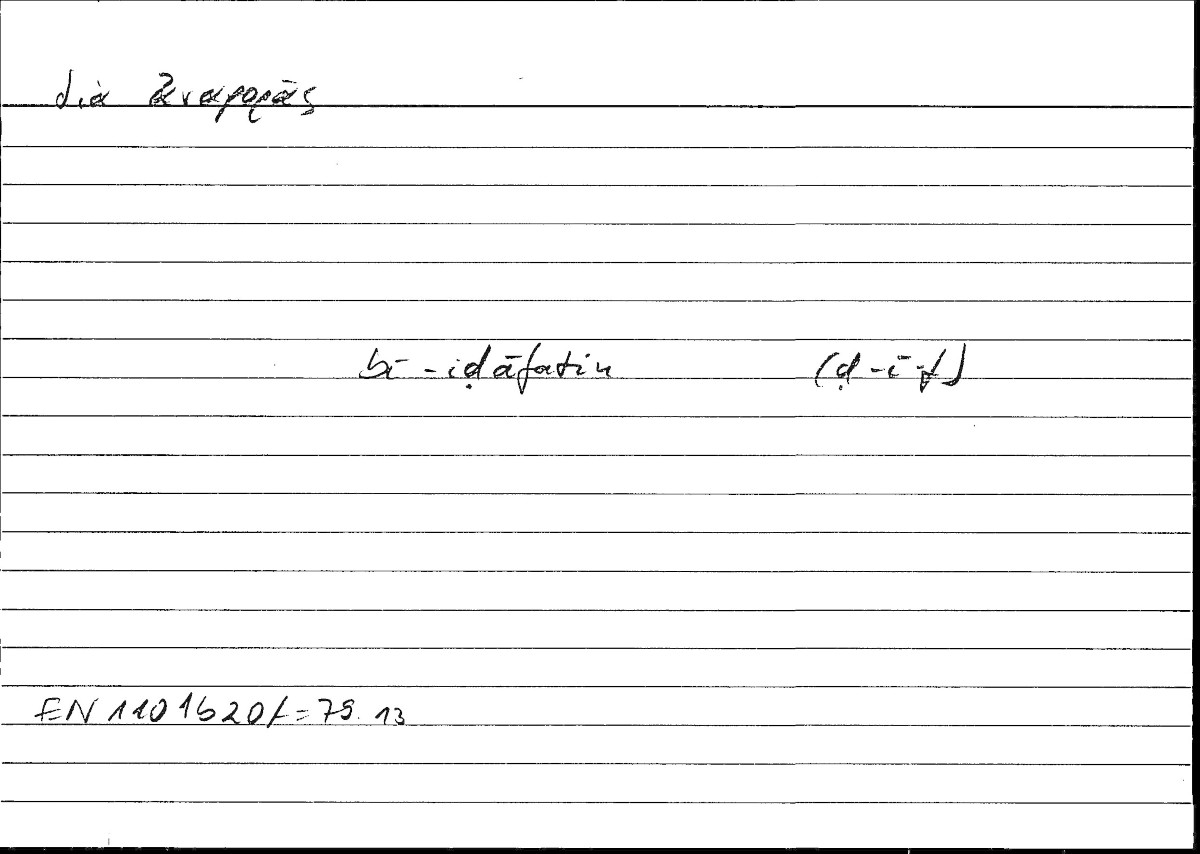 διὰ ἀναφορᾶς
bi-iḍāfatin (ḍ-ī-f)
EN 1101b20f=79.13